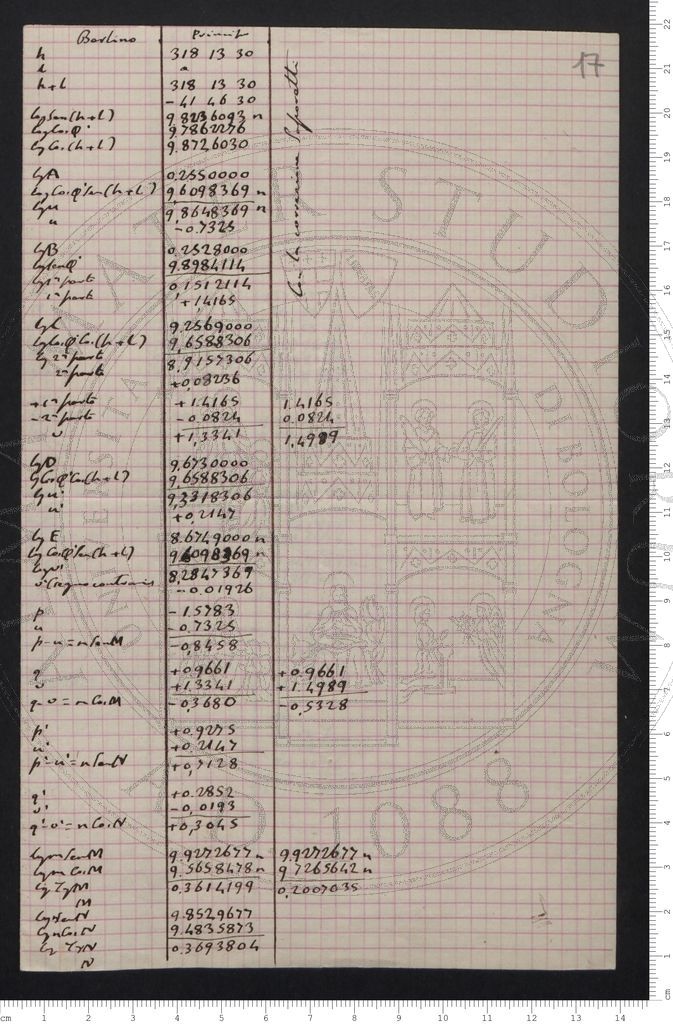 17
Berlino Princip
h 318 13 30
l "
h+l 318 13 30
-41 46 30
log sen(h+l) 9.8236093 n
log cos φ' 9.7862276
log cos(h+l) 9.8726030
Con la correzione Saporetti
lg A 0.2550000
log cos φ' sen(h+l) 9.6098369 n
lg u 9.8648369 n
u -0.7325
lg B 0.2528000
log sen φ' 9.8984114
lg 1ª parte 0.1512114
1ª parte +1.4165
lg C 9.2569000
log cos φ' cos(h+l) 9.6588306
lg 2ª parte 8.9157306
2ª parte +0.08236
+1ª parte +1.4165 1.4165
-2ª parte -0.0824 0.0824
v +1.3341 1.4989
lg D 9.6730000
lg cos φ' cos(h+l) 9.6588306
lg u' 9.3318306
u' +0.2147
lg E 8.6749000 n
lg cos φ' sen(h+l) 9.6098369 n
log v' 8.2847369
v' (segno contrario) -0.01926
p -1.5783
u -0.7325
p-u = m sen M -0.8458
q +0.9661 +0.9661
v +1.3341 +1.4989
q-v = m cos M -0.3680 -0.5328
p' +0.9275
u' +0.2147
p'-u' = n sen N +0.7128
q' +0.2852
v' -0.0193
q'-v' = n cos N +0.3045
lg m sen M 9.9272677 n 9.9272677 n
lg m cos M 9.5658478 n 9.7265642 n
lg Tg M 0.3614199 0.2007035
M
lg n sen N 9.8529677
lg n cos N 9.4835873
lg Tg N 0.3693804
N